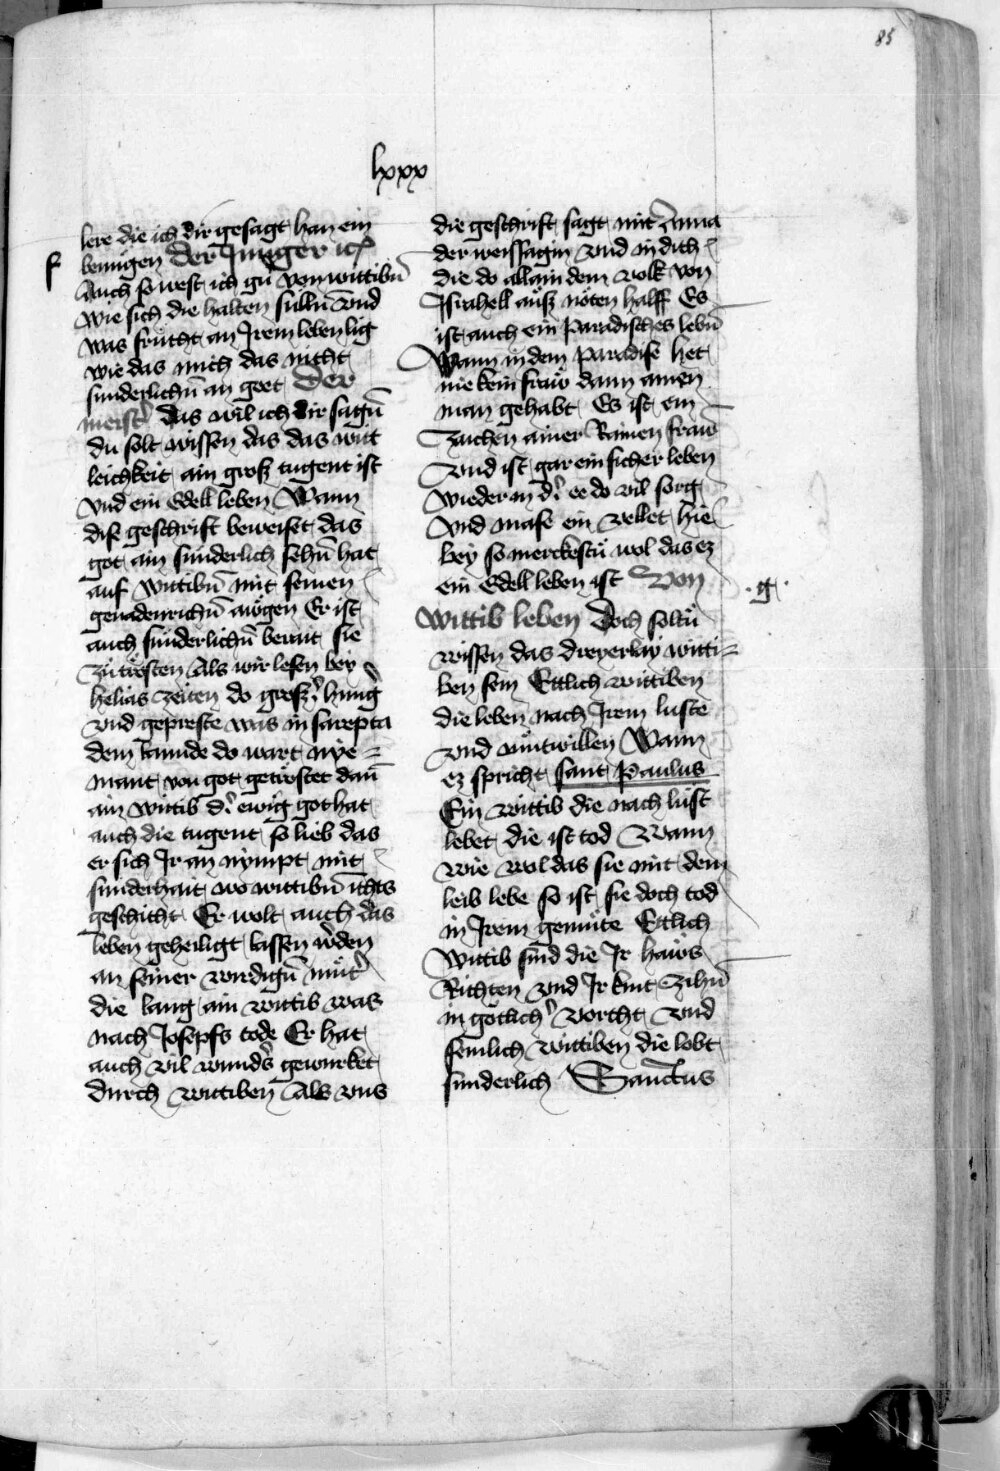 85
lxxx
lere die ich dir gesagt han ein
benugen Der Junger ich
f
Auch so west ich gn̄ von wittibn̄
wie sich die halten sulln̄ vnd
was frucht an Irem leben lig
wie das mich das nicht
sunderlichn̄ an geet Der
meistˀ das wil ich dir sagn̄
du solt wissen das das witt
leichkeit ain groß tugent ist
vnd ein Edell leben Wann
dise geschrift beweiset das
got ain sunderlich sehn̄ hat
auf wittibn̄ mit seinen
genadenrichn̄ awgen Er ist
auch sunderlichn̄ berait sie
zu trosten Als wir lesen bey
helias zeiten do großˀ hungˀ
vnd gepreste was in sarepta
dem lannde do wart nye=
mant von got getrostet dan̄
ain wittib dˀ ewig got hat
auch die tugent so lieb das
er sich Ir an nympt mit
sunderhait wo wittibn̄ ichts
geschicht Er wolt auch das
leben geheiligt lassen wˀden
an seiner wirdign̄ mutˀ
die lang ain wittib was
nach Josepfs tode Er hat
auch vil wundˀs gewurket
durch wittiben Als vns
die geschrift sagt mit Anna
der weissagin vnd iudith
die do allain dem volk von
Israhell auß nöten halff Es
ist auch ein paradisches lebn̄
Wann in dem paradise het
nie kein fraw dann ainen
man gehabt Es ist ein
Zaichen ainer Rainen fraw
vnd ist gar ein sicher leben
wieder in dˀ ee do vil sorg
vnd mase ein vellet hie
bey so merckestu wol das ez
ein Edell leben ist Von
.g.
wittib leben Doch soltu
wissen das dreyerlay witti=
ben sein Ettlich wittiben
die leben nach Irem luste
vnd mutwillen Wann
ez spricht sant Paulus
Ein wittib die nach lust
lebet die ist tod Wann
wie wol das sie mit dem
leib lebe so ist sie doch tod
in Irem gemüte Ettlich
wittib sind die Ir haws
Richten vnd Ir kint Zihn̄
in götlichˀ vorcht vnd
semlich wittiben die lobt
sunderlich Sanctus